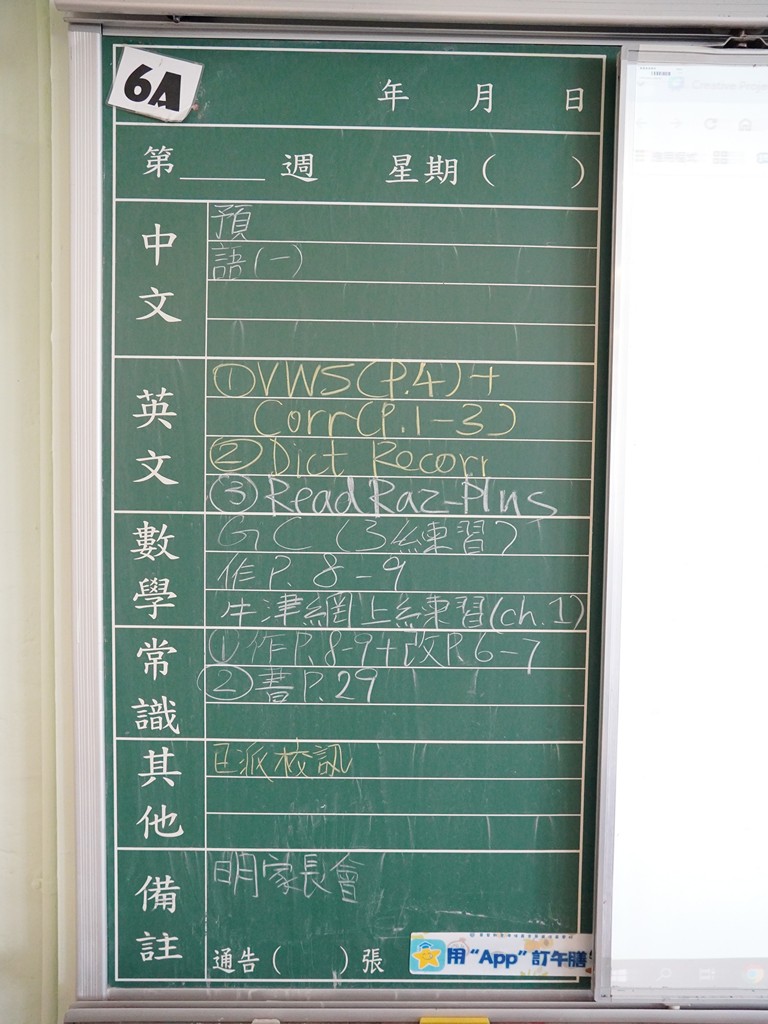 6A
年 月 日
第____週 星期( )
中文
預
語(一)
英文
①VWS(P.4)+
Corr(P.1-3)
② Dict Recorr
③ Read Raz-Plus
數學
GC(3練習)
作P. 8-9
牛津網上練習(ch.1)
常識
①作P.8-9+改P.6-7
②書P.29
其他
已派校訊
備註
明家長會
通告( )張
用“App”訂午膳